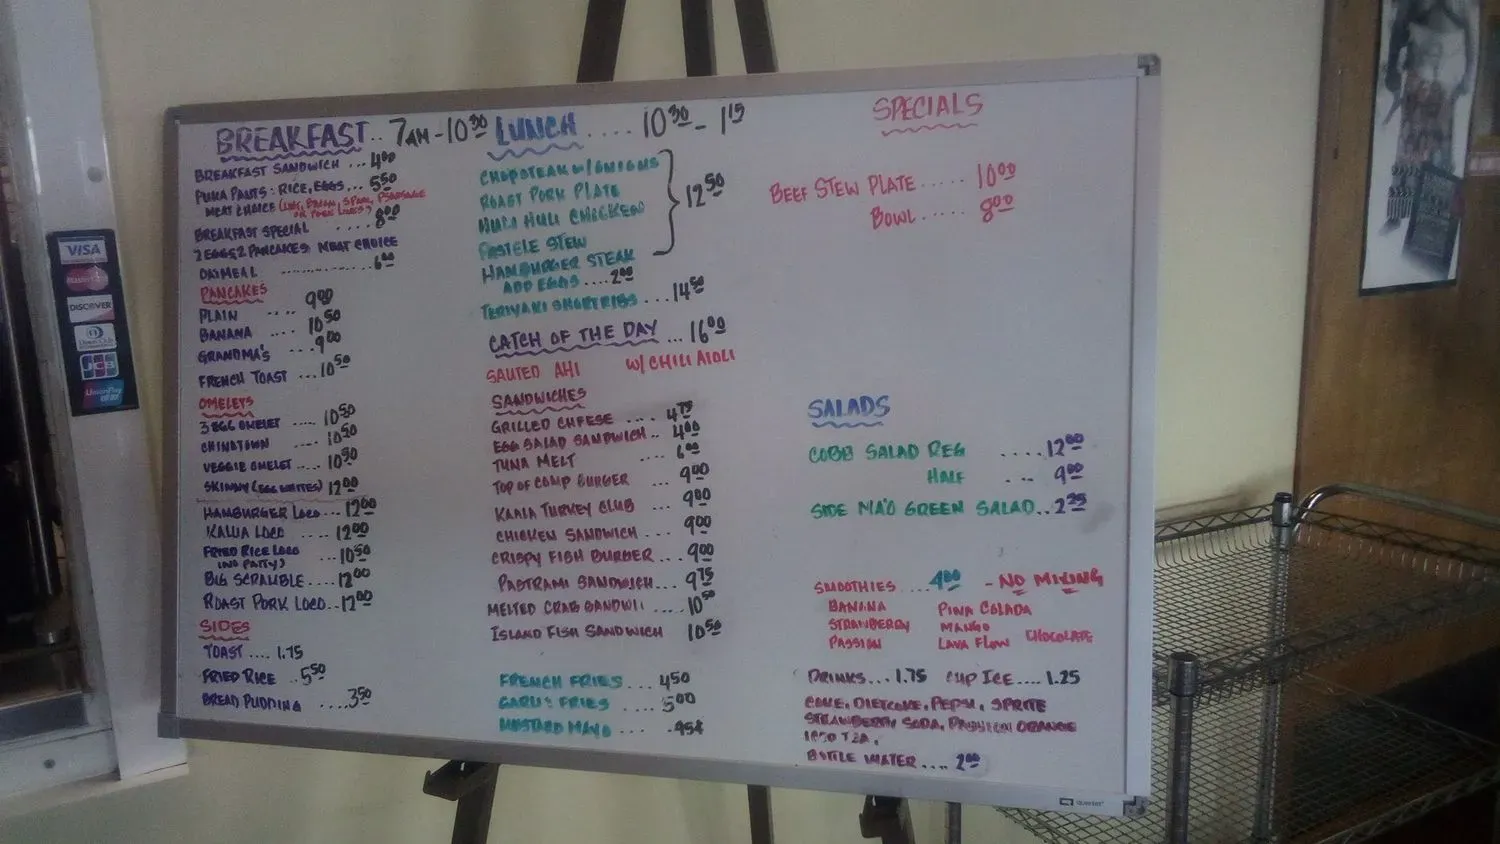 BREAKFAST.. 7AM-10:30
BREAKFAST SANDWICH ... 4.00
PUKA PANTS: RICE, EGGS... 5.50
MEAT CHOICE (LINK, BACON, SPAM, P SAUSAGE
OR PORK LINKS)
BREAKFAST SPECIAL ..... 8.00
2 EGGS 2 PANCAKES MEAT CHOICE
OATMEAL .............. 6.00
PANCAKES
PLAIN .... 9.00
BANANA .... 10.50
GRANDMA'S ... 9.00
FRENCH TOAST ... 10.50
OMELETS
3 EGG OMELET .... 10.50
CHINATOWN .... 10.50
VEGGIE OMELET .... 10.50
SKINNY (EGG WHITES) 12.00
HAMBURGER LOCO... 12.00
KALUA LOCO .... 12.00
FRIED RICE LOCO ... 10.50
(NO PATTY)
BIG SCRAMBLE .... 12.00
ROAST PORK LOCO.. 12.00
SIDES
TOAST .... 1.75
FRIED RICE .. 5.50
BREAD PUDDING ..... 3.50
LUNCH ..... 10:30 - 1:15
CHOPSTEAK W/ONIONS
ROAST PORK PLATE
HULI HULI CHICKEN
12.50
PASTELE STEW
HAMBURGER STEAK
ADD EGGS .... 2.00
TERIYAKI SHORTRIBS ... 14.50
CATCH OF THE DAY ... 16.00
SAUTED AHI W/ CHILI AIOLI
SANDWICHES
GRILLED CHEESE .... 4.75
EGG SALAD SANDWICH .. 4.00
TUNA MELT .... 6.00
TOP OF COMP BURGER ... 9.00
KAALA TURKEY CLUB ... 9.00
CHICKEN SANDWICH ... 9.00
CRISPY FISH BURGER ... 9.00
PASTRAMI SANDWICH... 9.75
MELTED CRAB SANDWI .... 10.50
ISLAND FISH SANDWICH 10.50
FRENCH FRIES ... 4.50
GARLIC FRIES .... 5.00
MUSTARD MAYO .... .95¢
SPECIALS
BEEF STEW PLATE ..... 10.00
BOWL ..... 8.00
SALADS
COBB SALAD REG ..... 12.00
HALF ... 9.00
SIDE MA'O GREEN SALAD.. 2.25
SMOOTHIES .... 4.00 - NO MIXING
BANANA PINA COLADA
STRAWBERRY MANGO
PASSION LAVA FLOW CHOCOLATE
DRINKS... 1.75 CUP ICE.... 1.25
COKE, DIETCOKE, PEPSI, SPRITE
STRAWBERRY SODA, PASSION ORANGE
ICED TEA,
BOTTLE WATER .... 2.00
VISA
MasterCard
DISCOVER
Diners Club
JCB
UnionPay
QUARTET